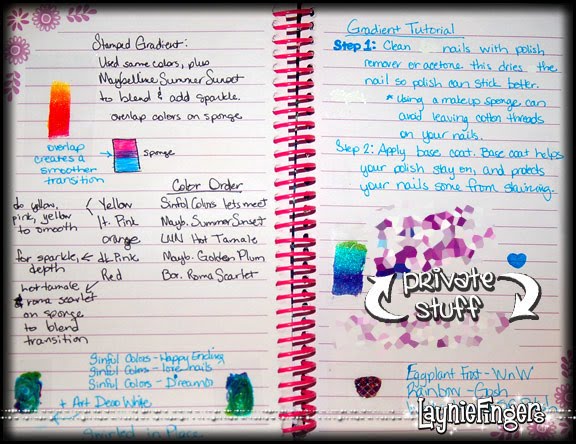 Stamped Gradient:
Used same colors, plus
Maybelline Summer Sunset
to blend & add sparkle.
overlap colors on sponge
overlap
creates a
smoother
transition
sponge
Color Order
do yellow,
pink, yellow
to smooth
Yellow Sinful Colors lets meet
lt. Pink Mayb. Summer Sunset
orange LWN Hot Tamale
for sparkle,
depth
dk Pink Mayb. Golden Plum
Red Bor. Roma Scarlet
hot tamale
& roma scarlet
on sponge
to blend
transition
Sinful Colors - Happy Ending
Sinful Colors - love nails
Sinful Colors - Dreamer
+ Art Deco White
Swirled in Place.
Gradient Tutorial
Step 1: Clean nails with polish
remover or acetone. this dries the
nail so polish can stick better.
* Using a makeup sponge can
avoid leaving cotton threads
on your nails.
Step 2: Apply base coat. Base coat helps
your polish stay on, and protects
your nails some from staining.
private
stuff
Eggplant Frost - WnW
Rainbow - Gosh
LaynieFingers